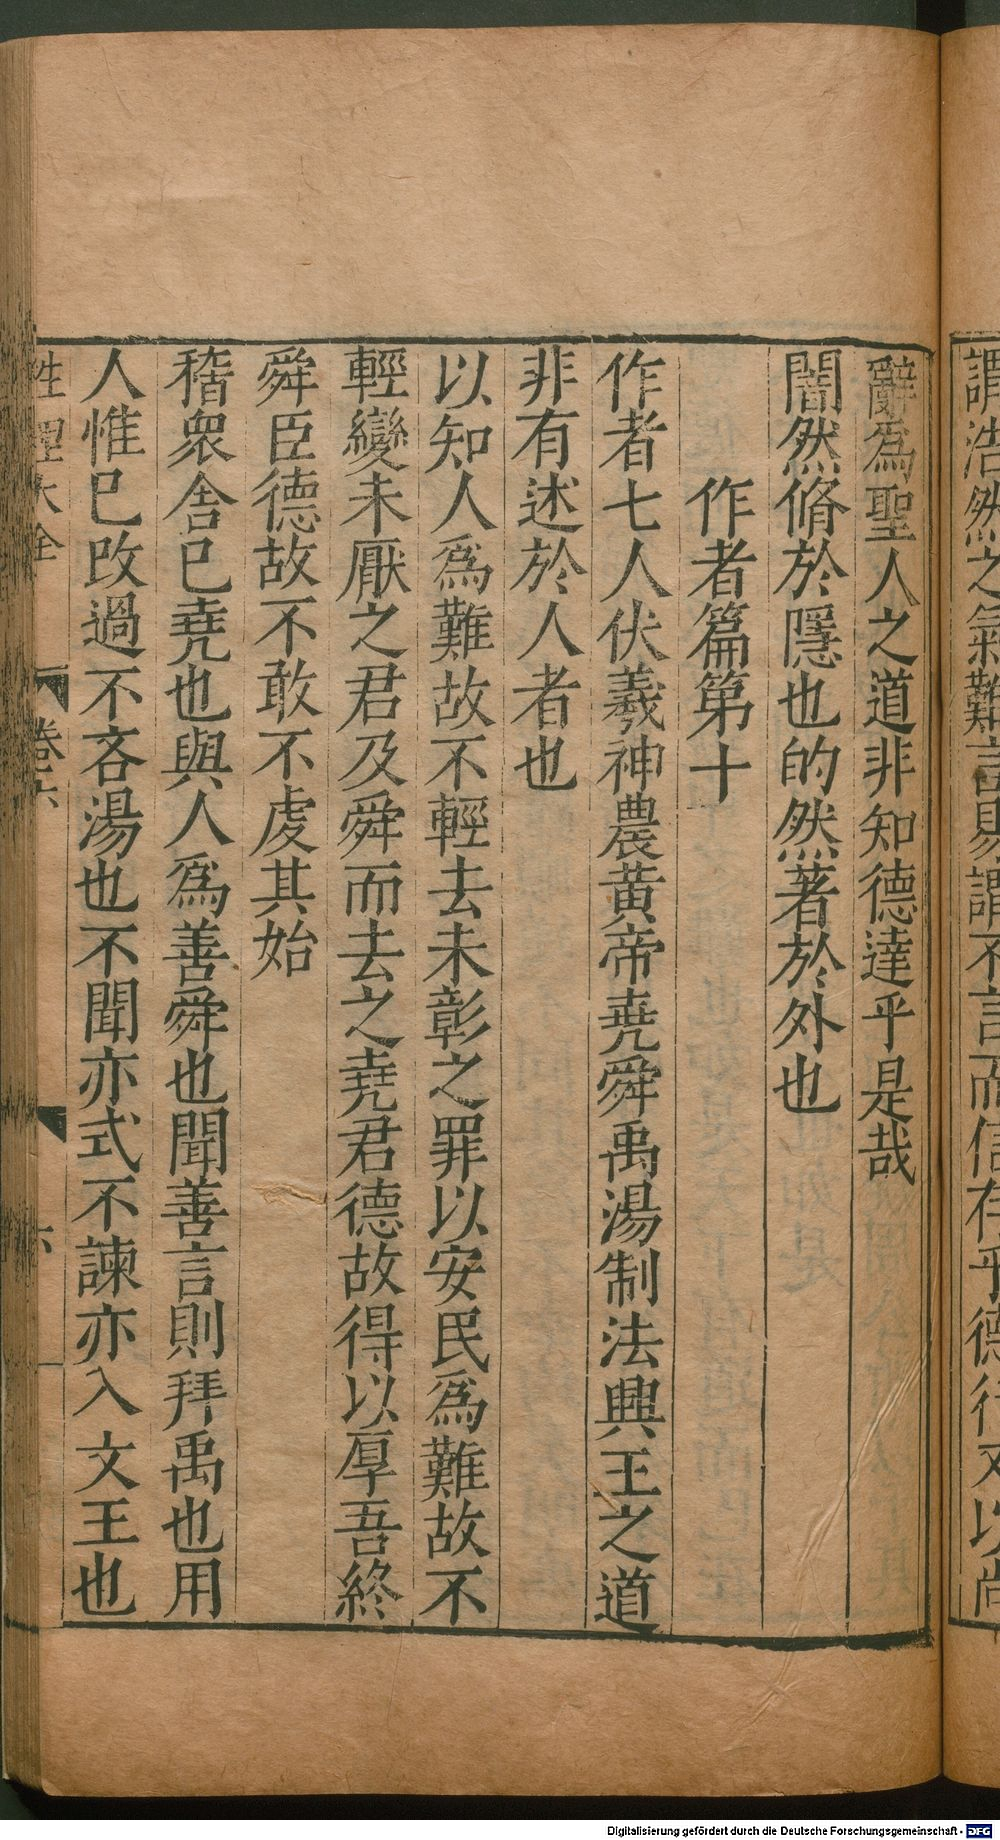 謂浩然之氣難言易謂不言而信存乎德行又以尚
辭爲聖人之道非知德達乎是哉
闇然脩於隱也的然著於外也
作者篇第十
作者七人伏羲神農黃帝堯舜禹湯制法興王之道
非有述於人者也
以知人爲難故不輕去未彰之罪以安民爲難故不
輕變未厭之君及舜而去之堯君德故得以厚吾終
舜臣德故不敢不虔其始
稽衆舍已堯也與人爲善舜也聞善言則拜禹也用
人惟已改過不吝湯也不聞亦式不諫亦入文王也
性理大全 卷六 六
Digitalisierung gefördert durch die Deutsche Forschungsgemeinschaft - DFG